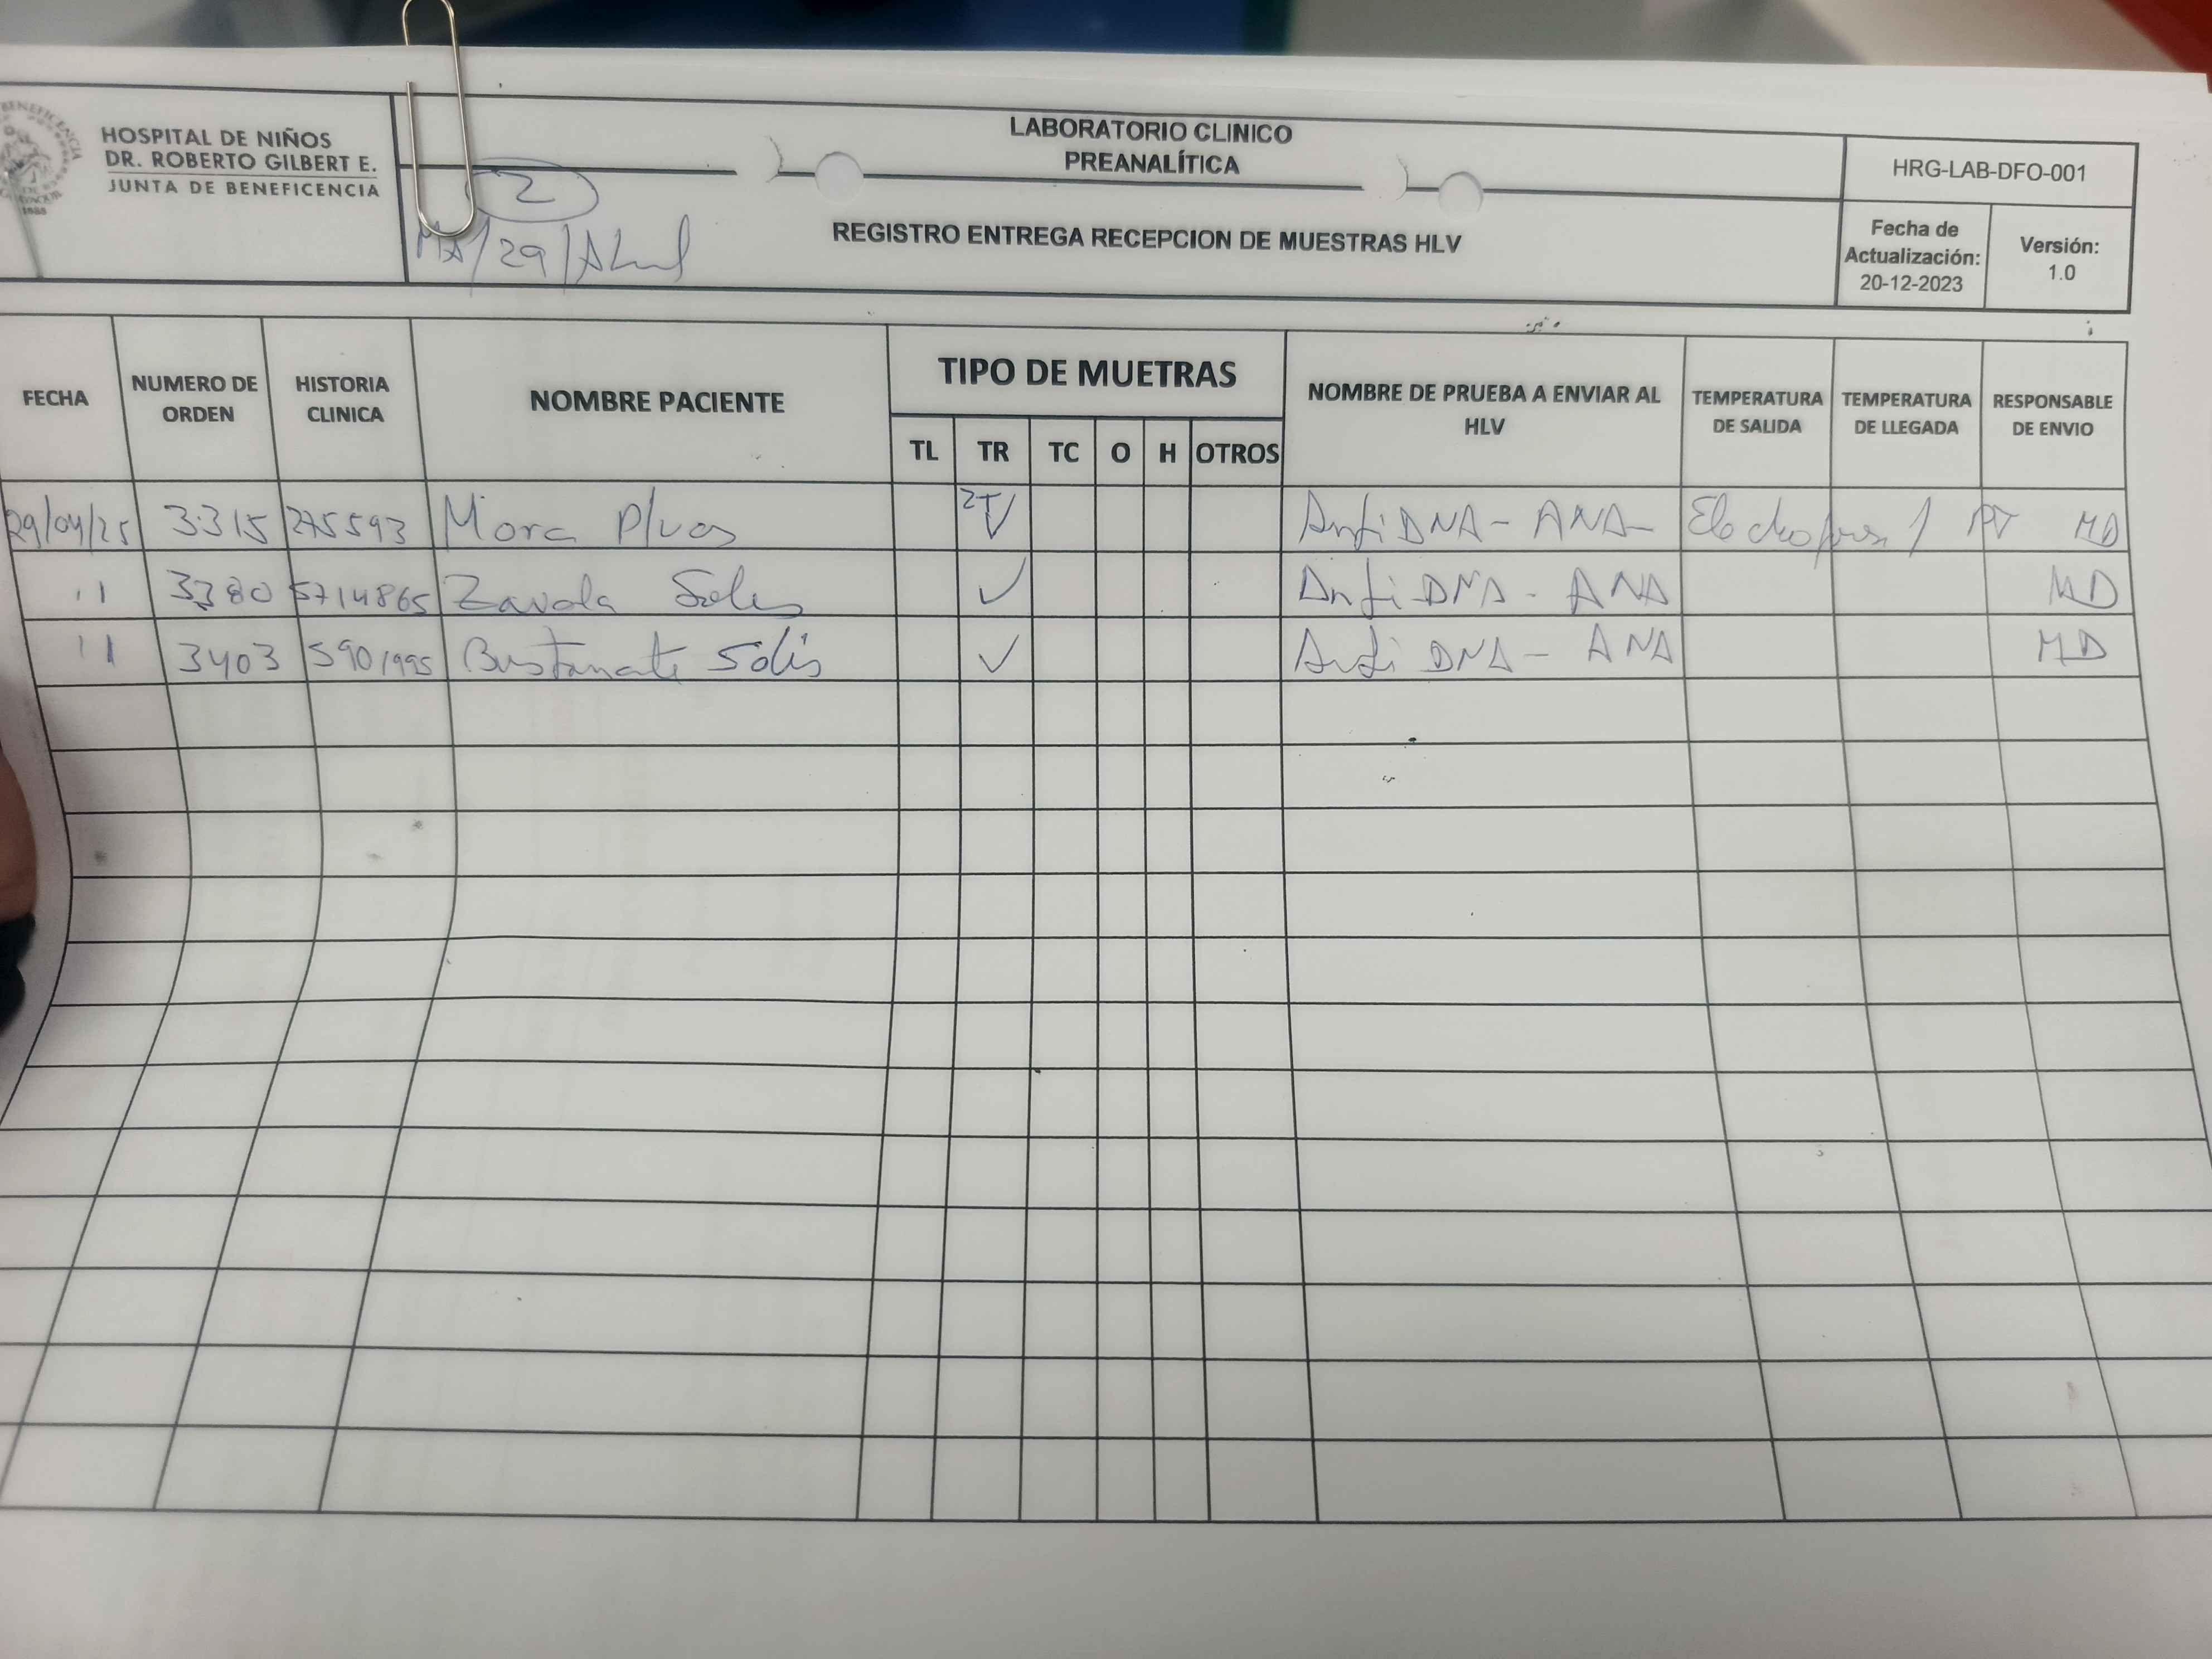 HOSPITAL DE NIÑOS
DR. ROBERTO GILBERT E.
JUNTA DE BENEFICENCIA
LABORATORIO CLINICO
PREANALÍTICA
REGISTRO ENTREGA RECEPCION DE MUESTRAS HLV
HRG-LAB-DFO-001
Fecha de
Actualización:
20-12-2023
Versión:
1.0
2
MA/29/Abril
FECHA
NUMERO DE
ORDEN
HISTORIA
CLINICA
NOMBRE PACIENTE
TIPO DE MUETRAS
TL TR TC O H OTROS
NOMBRE DE PRUEBA A ENVIAR AL
HLV
TEMPERATURA
DE SALIDA
TEMPERATURA
DE LLEGADA
RESPONSABLE
DE ENVIO
29/04/25 3315 275593 Mora Pluas 2T ✓ Anti DNA - ANA - MD
11 3380 5714865 Zavala ✓ Anti DNA - ANA MD
11 3403 5901995 Bustamante Solis ✓ Anti DNA - ANA MD